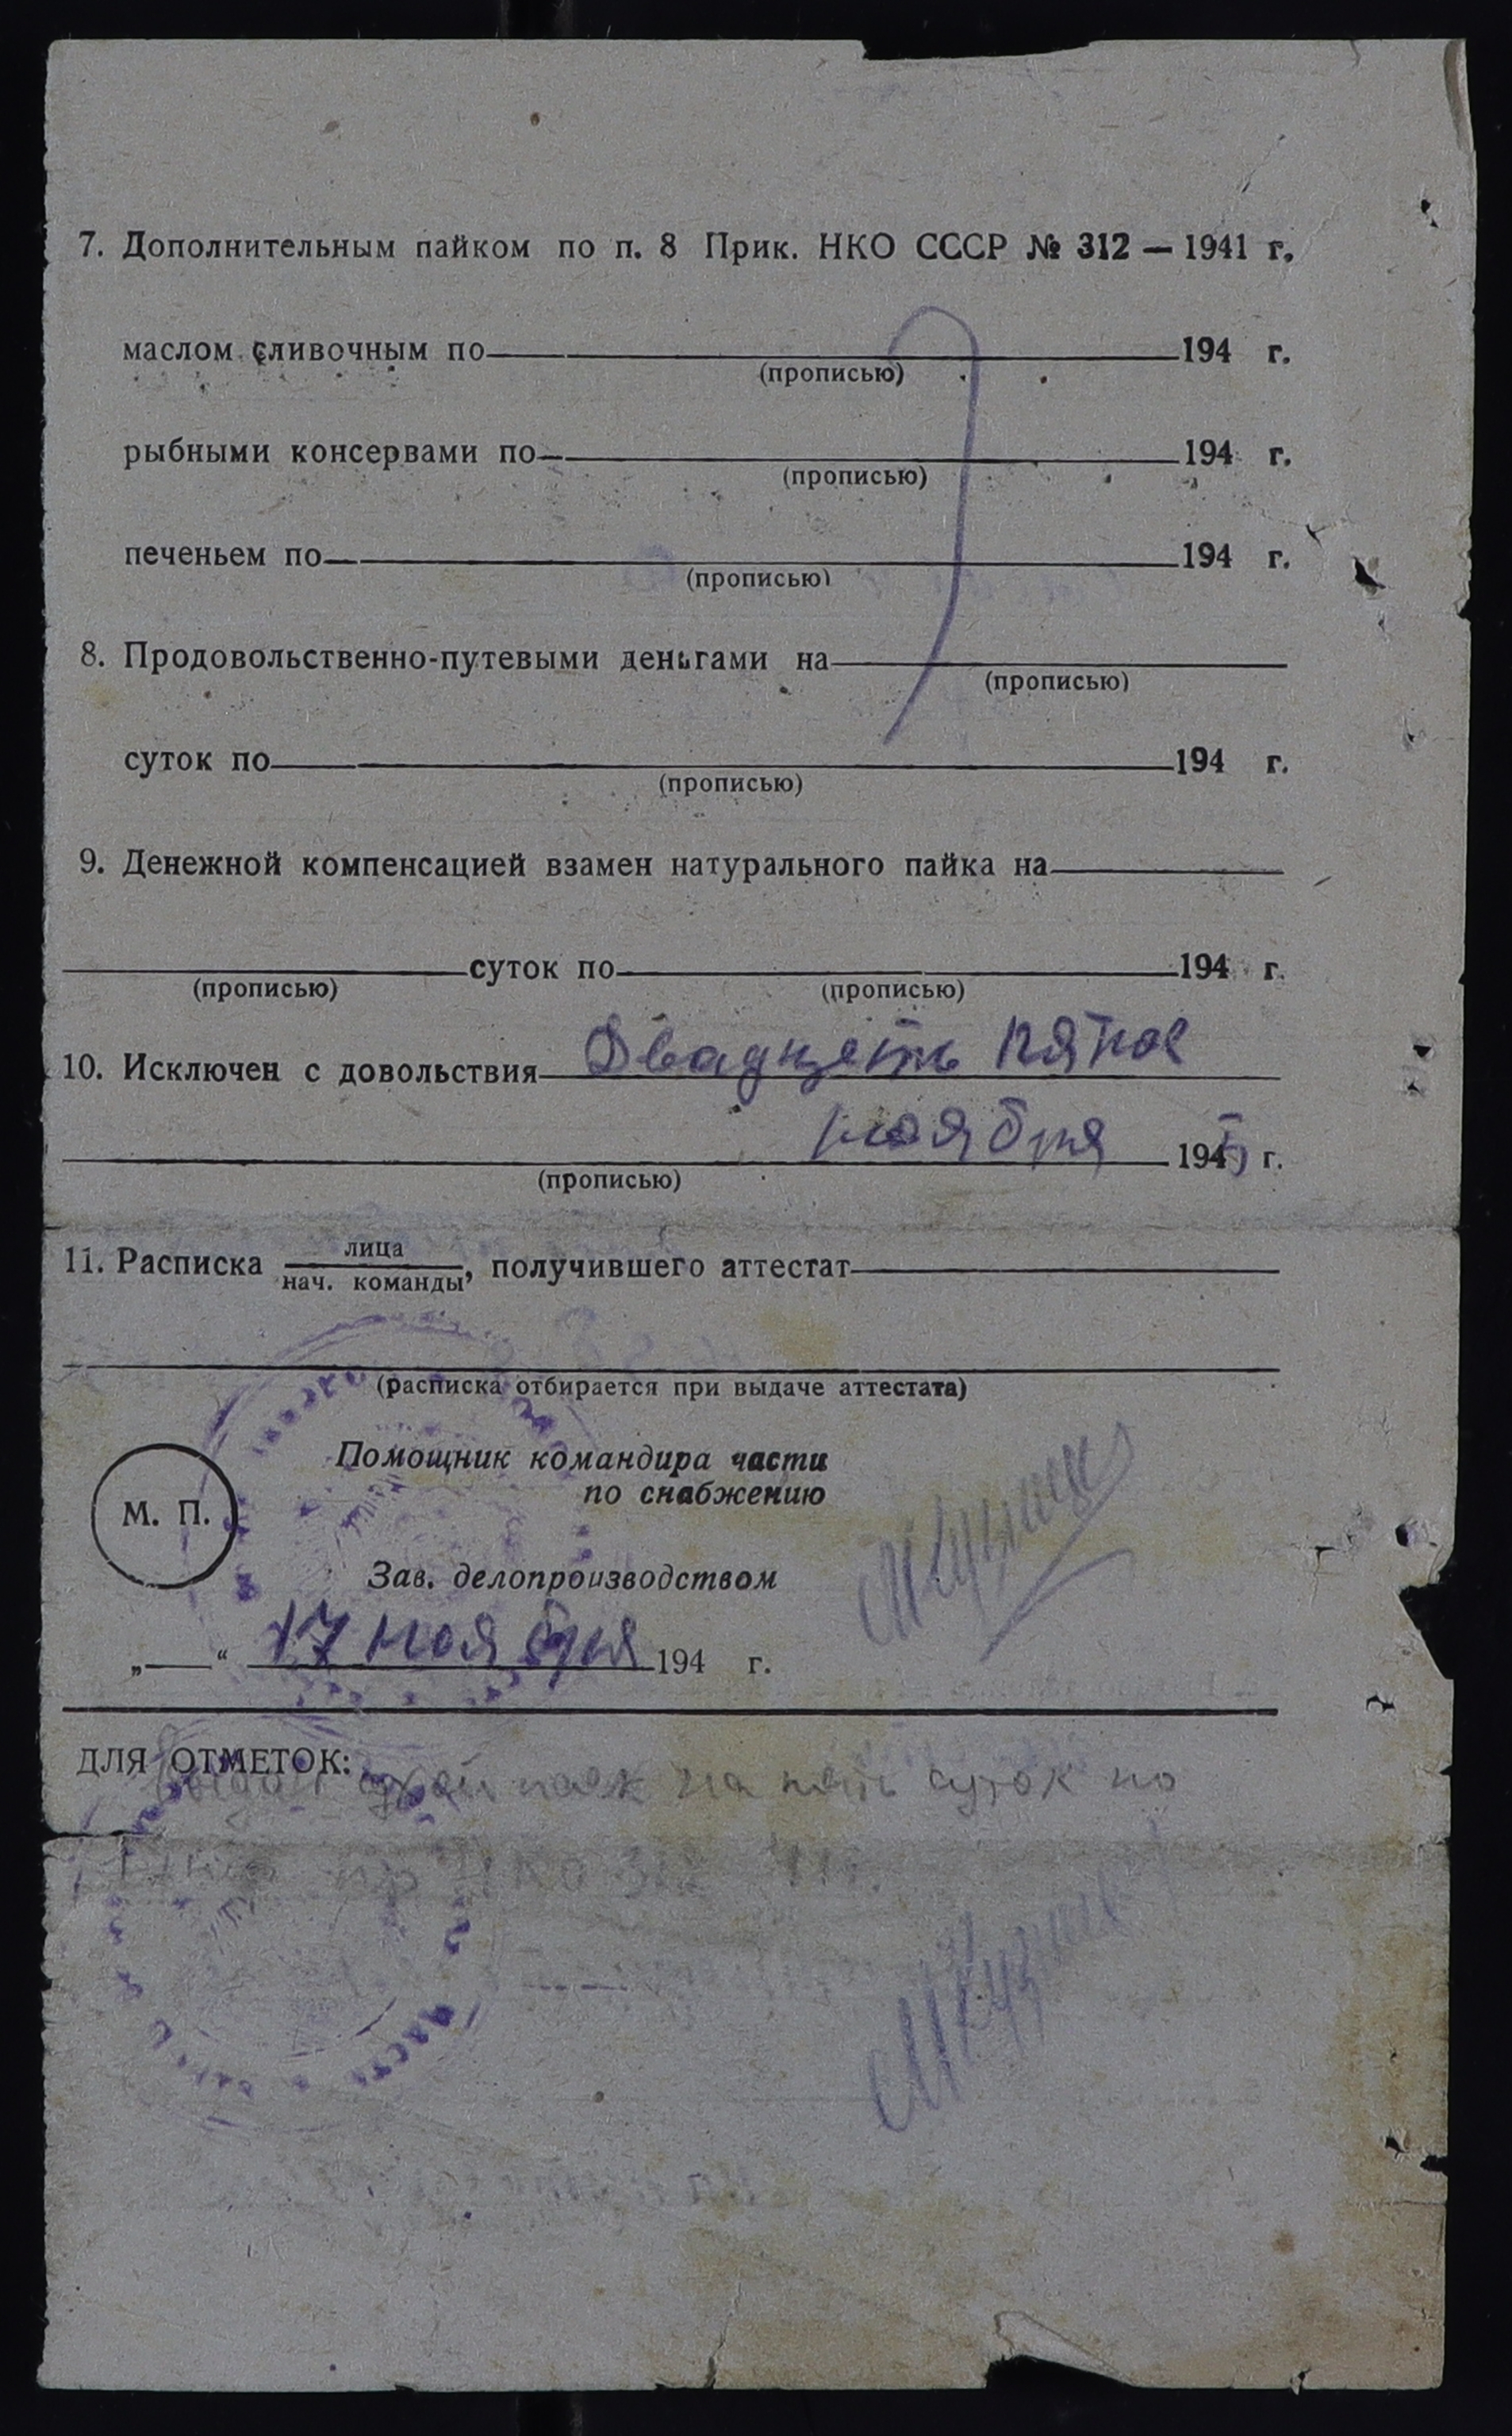 7. Дополнительным пайком по п. 8 Прик. НКО СССР № 312 — 1941 г.
маслом сливочным по 194 г.
(прописью)
рыбными консервами по 194 г.
(прописью)
печеньем по 194 г.
(прописью)
8. Продовольственно-путевыми деньгами на
(прописью)
суток по 194 г.
(прописью)
9. Денежной компенсацией взамен натурального пайка на
суток по 194 г.
(прописью) (прописью)
10. Исключен с довольствия Двадцать пятое
ноября 1945 г.
(прописью)
11. Расписка лица
нач. команды, получившего аттестат
(расписка отбирается при выдаче аттестата)
Помощник командира части
по снабжению
М. П.
Зав. делопроизводством
„ “ 17 ноября 194 г.
ДЛЯ ОТМЕТОК:
Выдан сухой паек на пять суток по
пр НКО 312 41г.